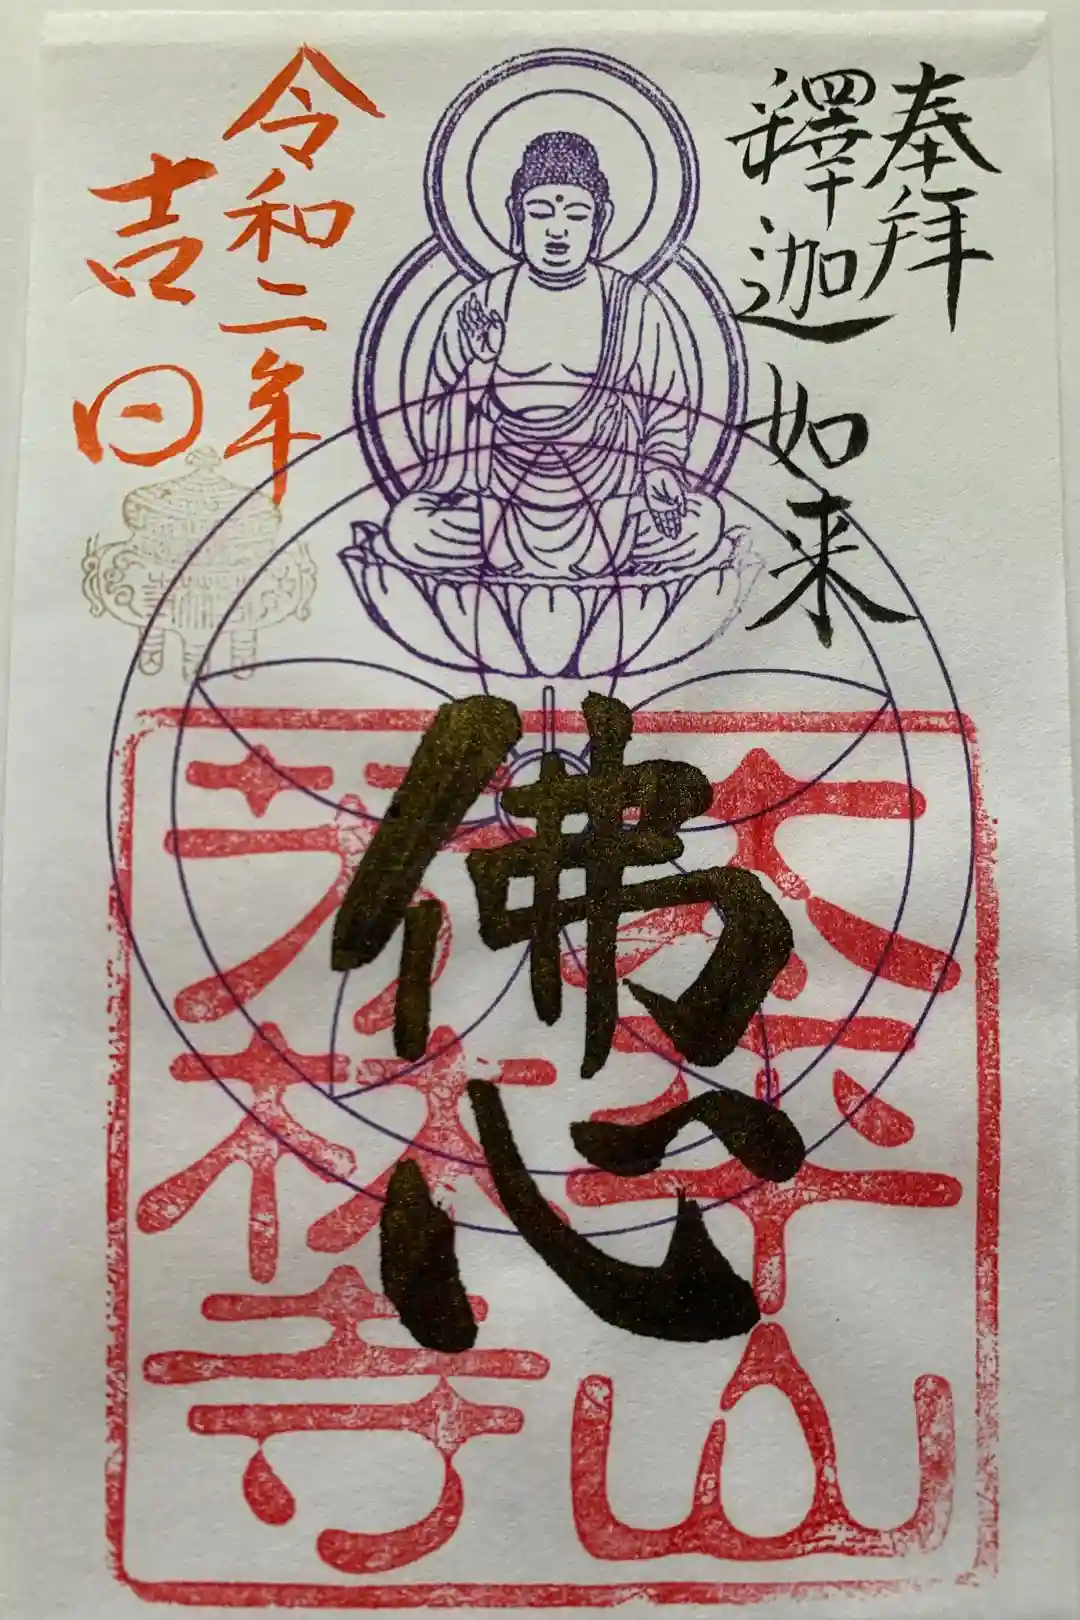 奉拝
釋迦如来
佛心
太平山
芳林寺
令和二年
吉日